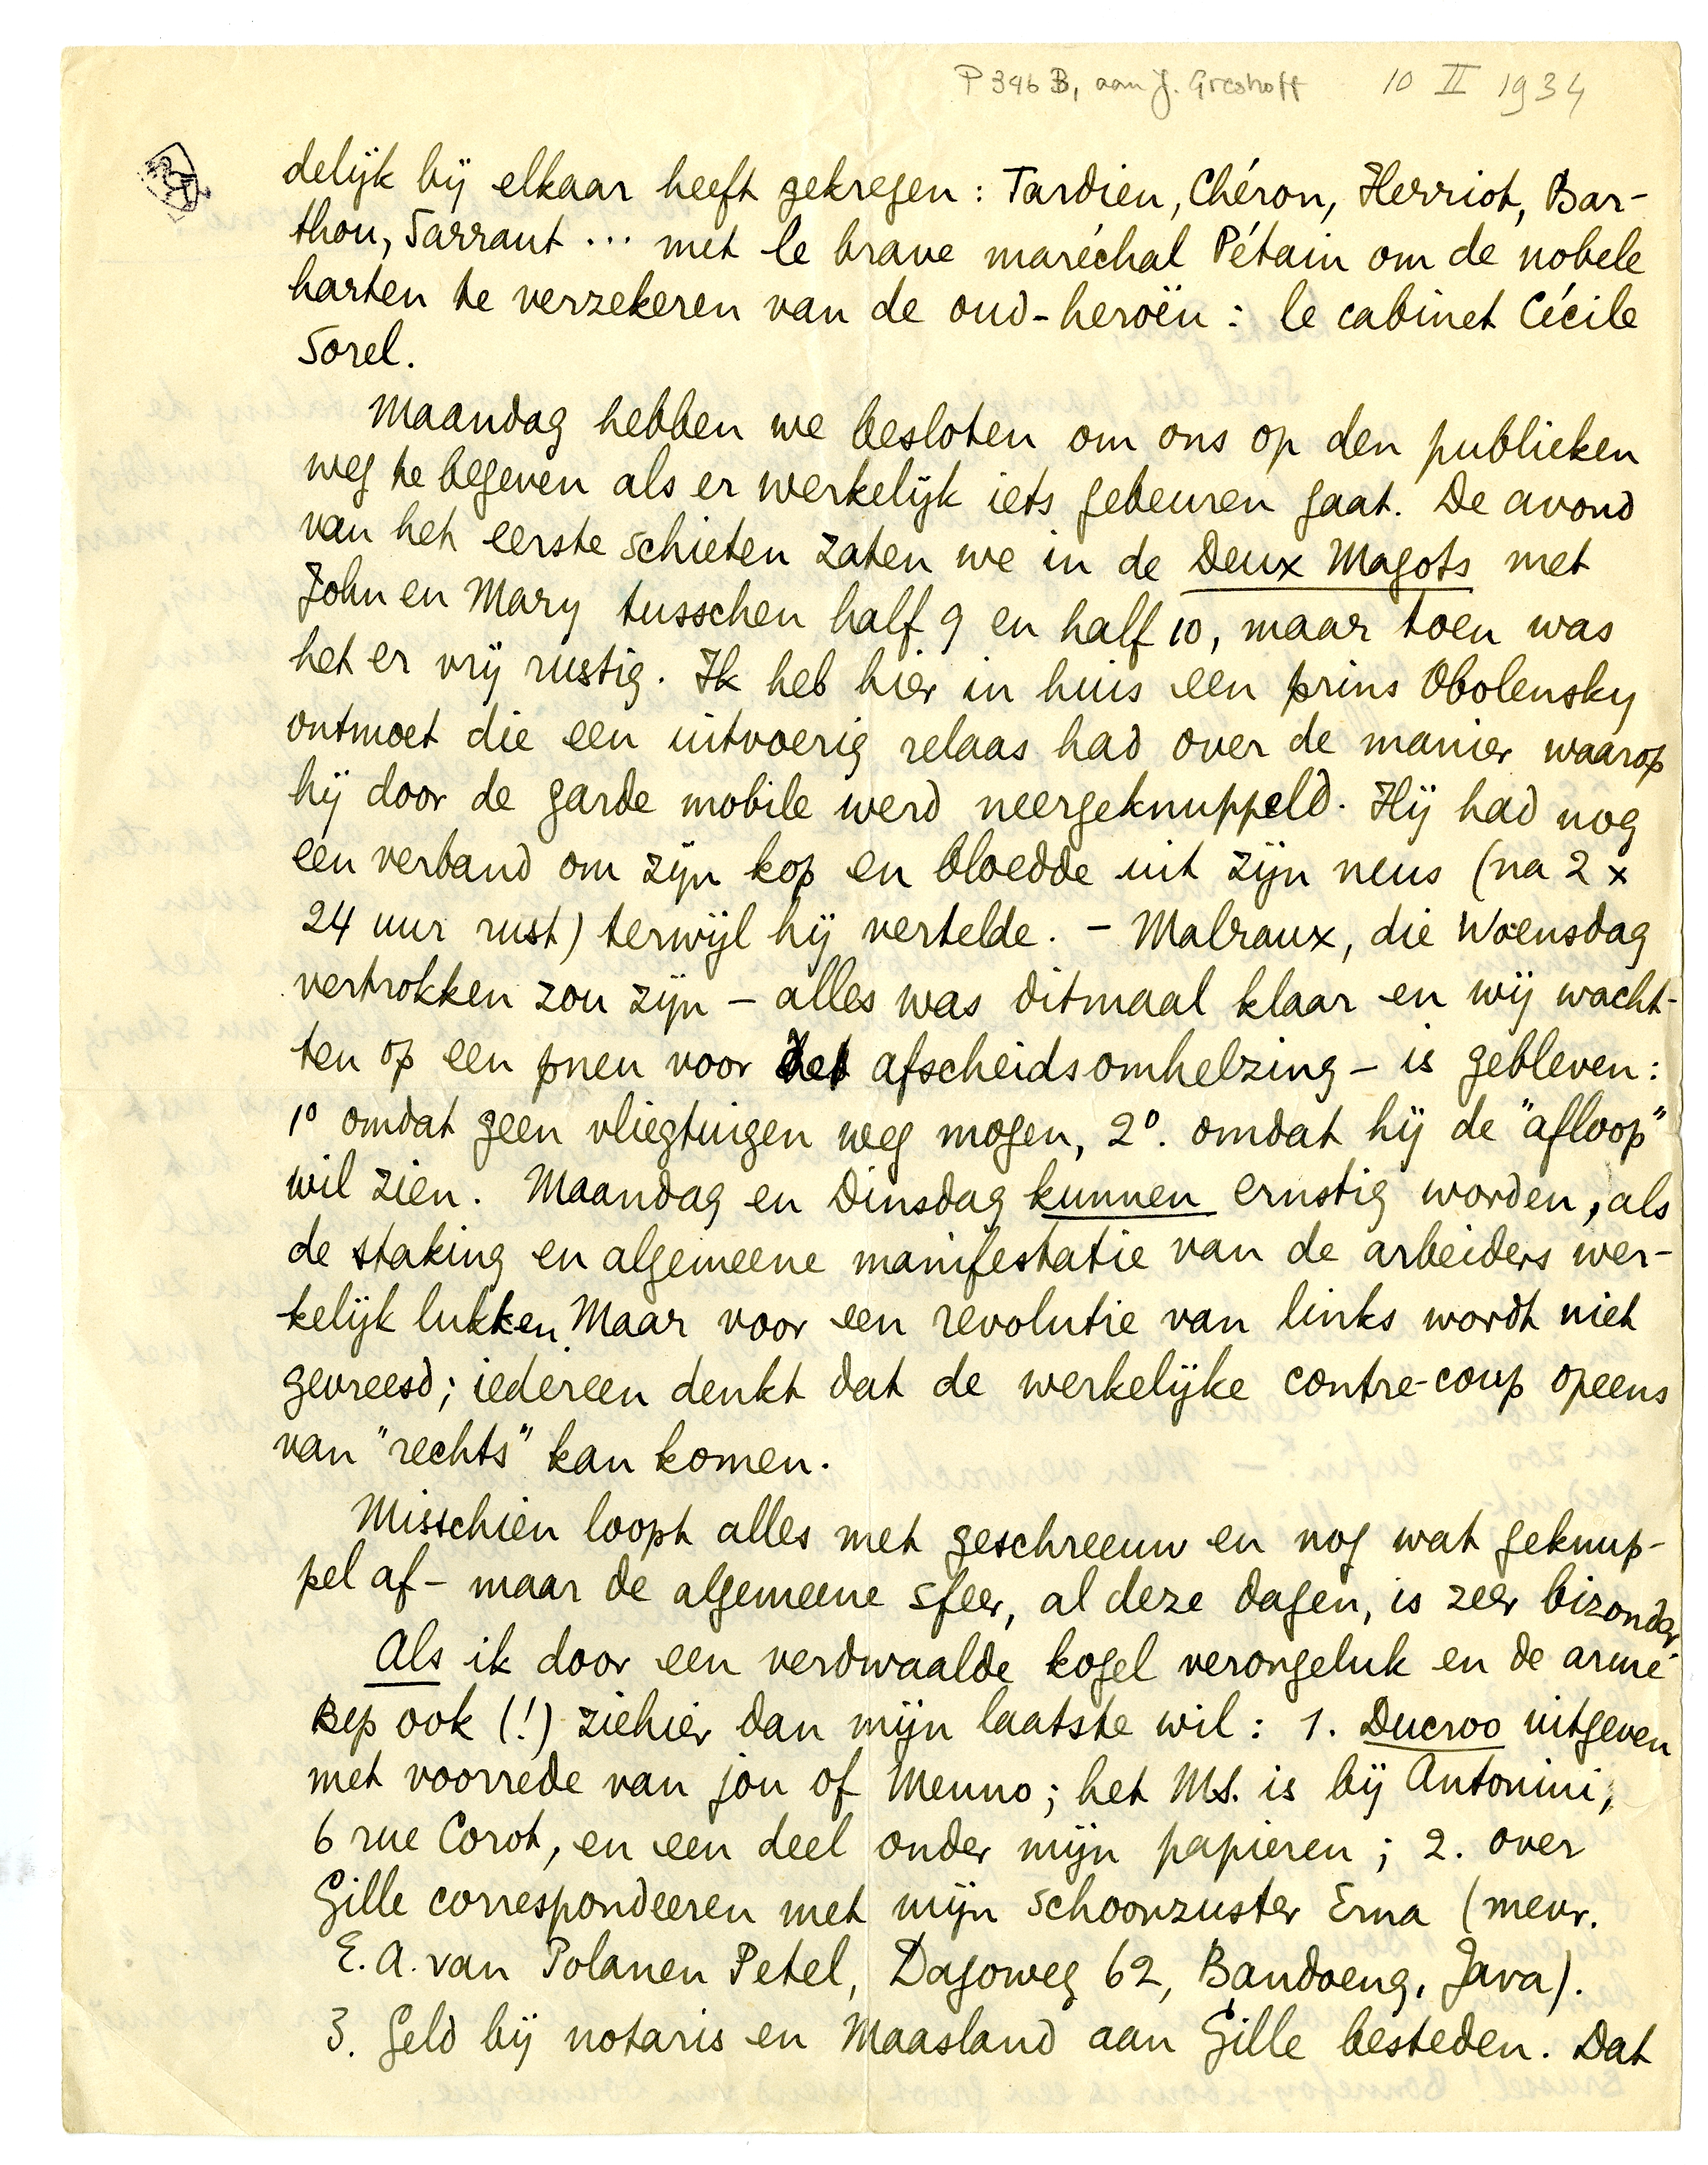 P 346 B, aan J. Greshoff 10 II 1934
delijk bij elkaar heeft gekregen: Tardieu, Chéron, Herriot, Bar-
thou, Sarraut ... met le brave maréchal Pétain om de nobele
harten te verzekeren van de oud-heroën: le cabinet Cécile
Sorel.
Maandag hebben we besloten om ons op den publieken
weg te begeven als er werkelijk iets gebeuren gaat. De avond
van het eerste schieten zaten we in de Deux Magots met
John en Mary tusschen half 9 en half 10, maar toen was
het er vrij rustig. Ik heb hier in huis een prins Obolensky
ontmoet die een uitvoerig relaas had over de manier waarop
hij door de garde mobile werd neergeknuppeld. Hij had nog
een verband om zijn kop en bloedde uit zijn neus (na 2 x
24 uur rust) terwijl hij vertelde. - Malraux, die Woensdag
vertrokken zou zijn - alles was ditmaal klaar en wij wacht-
ten op een pneu voor de afscheidsomhelzing - is gebleven:
1º omdat geen vliegtuigen weg mogen, 2º. omdat hij de "afloop"
wil zien. Maandag en Dinsdag kunnen ernstig worden, als
de staking en algemeene manifestatie van de arbeiders wer-
kelijk lukken. Maar voor een revolutie van links wordt niet
gevreesd; iedereen denkt dat de werkelijke contre-coup opeens
van "rechts" kan komen.
Misschien loopt alles met geschreeuw en nog wat geknup-
pel af - maar de algemeene sfeer, al deze dagen, is zeer bizonder.
Als ik door een verdwaalde kogel verongeluk en de arme
Bep ook (!) ziehier dan mijn laatste wil: 1. Ducroo uitgeven
met voorrede van jou of Menno; het MS. is bij Antonini,
6 rue Corot, en een deel onder mijn papieren; 2. over
Gille correspondeeren met mijn schoonzuster Erna (mevr.
E. A. van Polanen Petel, Dagoweg 62, Bandoeng, Java).
3. Geld bij notaris en Maasland aan Gille besteden. Dat